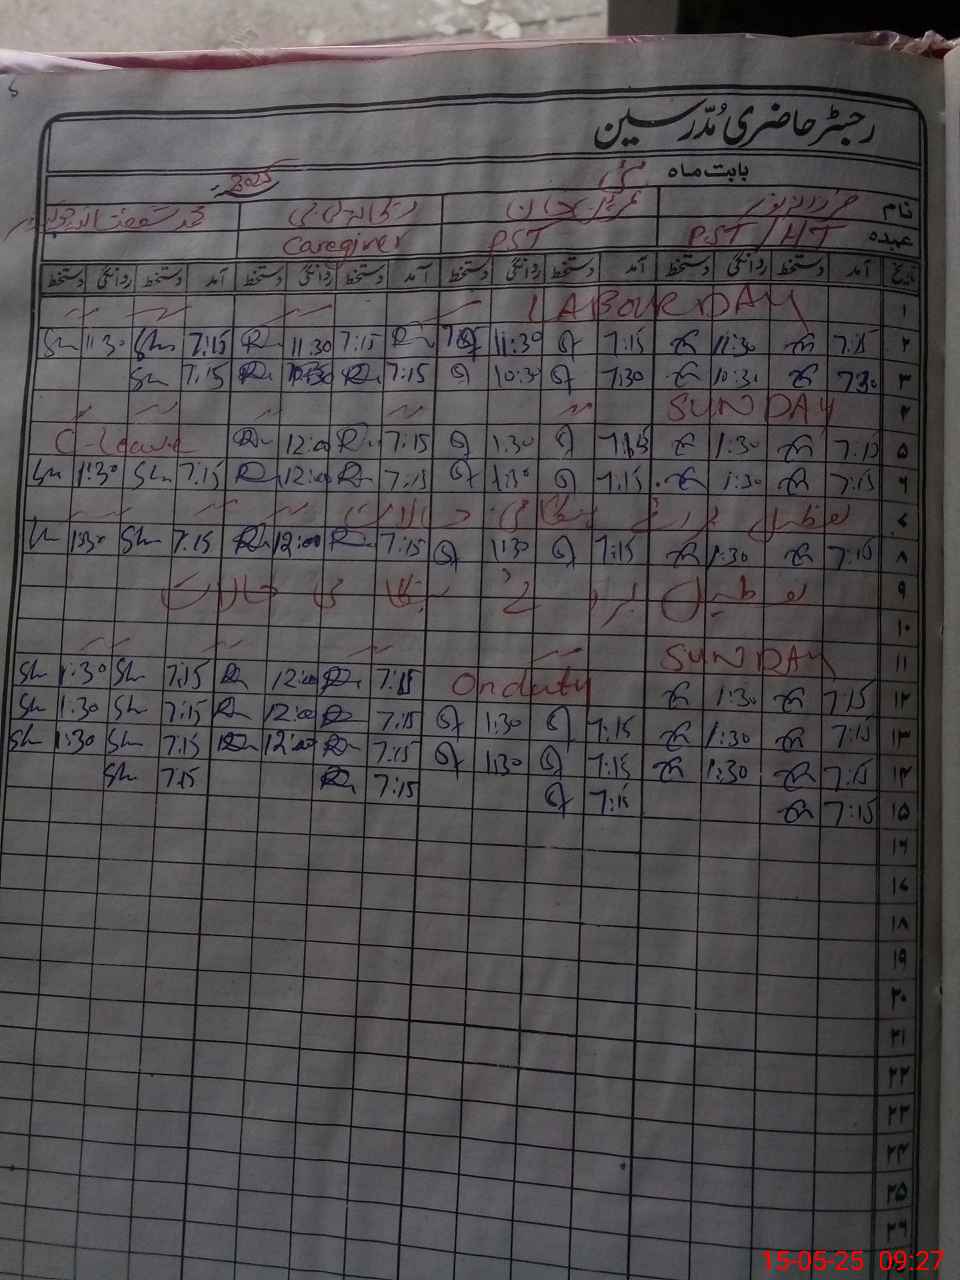 رجسٹر حاضری مُدّرسین
بابت ماہ مئی 2025
نام
عہدہ PST / HT PST Caregiver
تاریخ آمد دستخط روانگی دستخط آمد دستخط روانگی دستخط آمد دستخط روانگی دستخط آمد دستخط روانگی دستخط
۱ LABOUR DAY
۲ 7:15 11:30 7:15 11:30 7:15 11:30 7:15 11:30
۳ 7:30 10:30 7:30 10:30 7:15 10:30 7:15
۴ SUNDAY
۵ 7:15 1:30 7:15 1:30 7:15 12:00 C-Leave
۶ 7:15 1:30 7:15 1:30 7:15 12:00 7:15 1:30
۷ تعطیل برائے ہنگامی حالات
۸ 7:15 1:30 7:15 1:30 7:15 12:00 7:15 1:30
۹ تعطیل برائے ہنگامی حالات
۱۰
۱۱ SUNDAY
۱۲ 7:15 1:30 On duty 7:15 12:00 7:15 1:30
۱۳ 7:15 1:30 7:15 1:30 7:15 12:00 7:15 1:30
۱۴ 7:15 1:30 7:15 1:30 7:15 12:00 7:15 1:30
۱۵ 7:15 7:15 7:15 7:15
۱۶
۱۷
۱۸
۱۹
۲۰
۲۱
۲۲
۲۳
۲۴
۲۵
۲۶
15-05-25 09:27